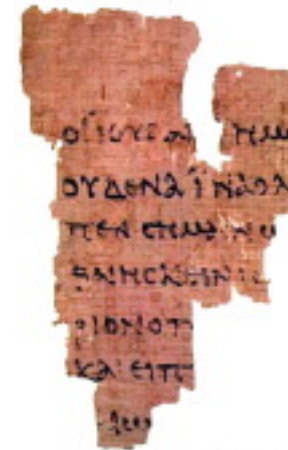 ΟΙ ΪΟΥΔΑΙ ΗΜ
ΟΥΔΕΝΑ ΪΝΑ Ο Λ
ΠΕΝ CΗΜΑΙΝΩ
ΘΝΗCΚΕΙΝ ΙC
ΡΙΟΝ Ο Π
ΚΑΙ ΕΙΠ